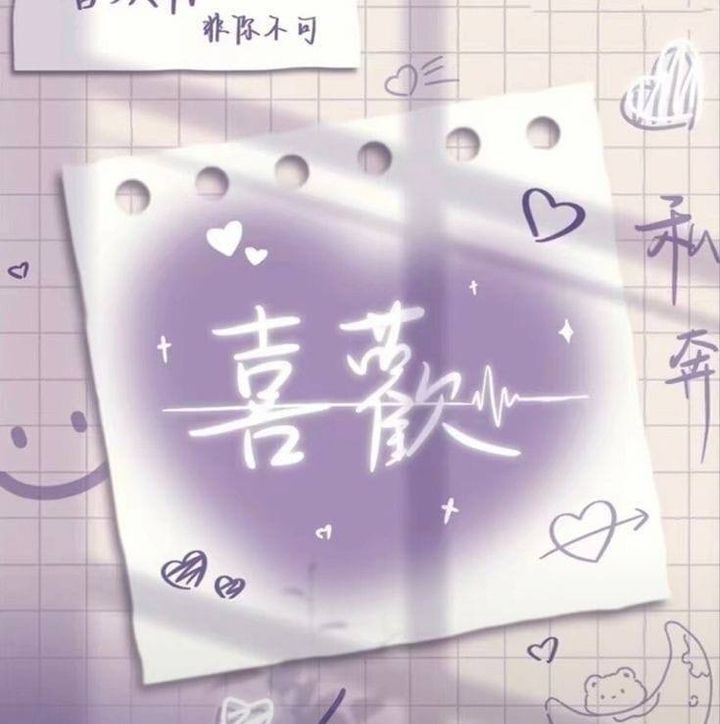 非你不可
喜歡
私奔